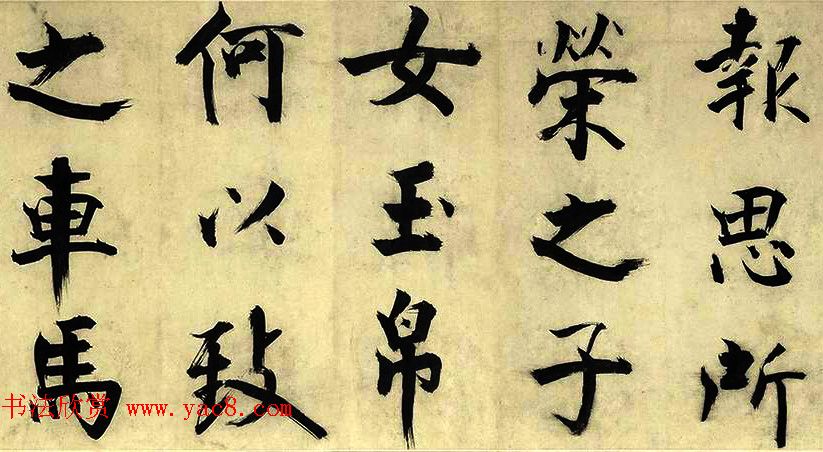 報思所
榮之子
女玉帛
何以致
之車馬
书法欣赏 www.yac8.com